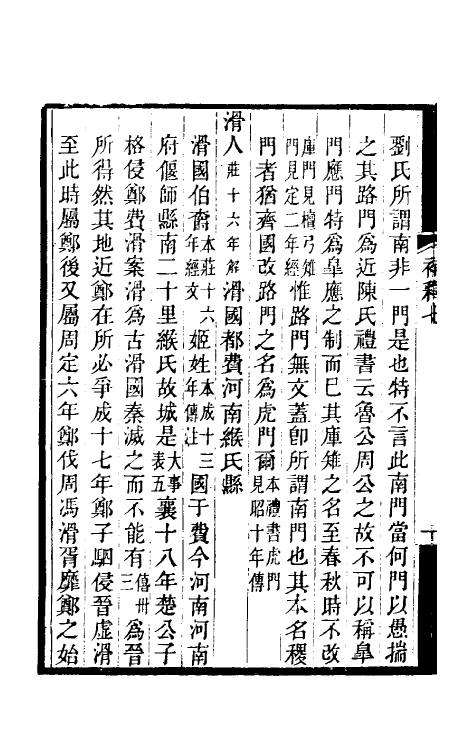 劉氏所謂南非一門是也特不言此南門當何門以愚揣
之其路門爲近陳氏禮書云魯公周公之故不可以稱皐
門應門特爲皐應之制而巳其庫雉之名至春秋時不改
庫門見檀弓雉門見定二年經惟路門無文蓋卽所謂南門也其本名稷
門者猶齊國改路門之名爲虎門爾本禮書虎門見昭十年傳
滑人莊十六年解滑國都費河南緱氏縣
滑國伯爵本莊十六年經文姬姓本成十三年傳注國于費今河南河南
府偃師縣南二十里緱氏故城是大事表五襄十八年楚公子
格侵鄭費滑案滑爲古滑國秦滅之而不能有僖卅三爲晉
所得然其地近鄭在所必爭成十七年鄭子駟侵晉虛滑
至此時屬鄭後又屬周定六年鄭伐周馮滑胥靡鄭之始